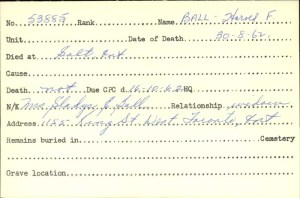 No. 53885 Rank Name BALL - Harold F.
Unit Date of Death 30-8-62.
Died at Galt, Ont
Cause
Death not Due CPC d 16-10-62 HQ
N/K Mrs. Gladys C. Ball Relationship widow
Address 1155 King St West Toronto, Ont
Remains buried in Cemetery
Grave location